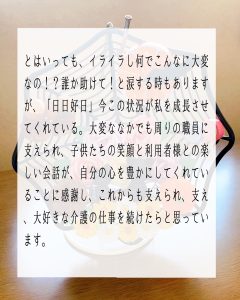 とはいっても、イライラし何でこんなに大変
なの！？誰か助けて！と涙する時もあります
が、「日日好日」今この状況が私を成長させ
てくれている。大変ななかでも周りの職員に
支えられ、子供たちの笑顔と利用者様との楽
しい会話が、自分の心を豊かにしてくれてい
ることに感謝し、これからも支えられ、支え
、大好きな介護の仕事を続けたらと思ってい
ます。